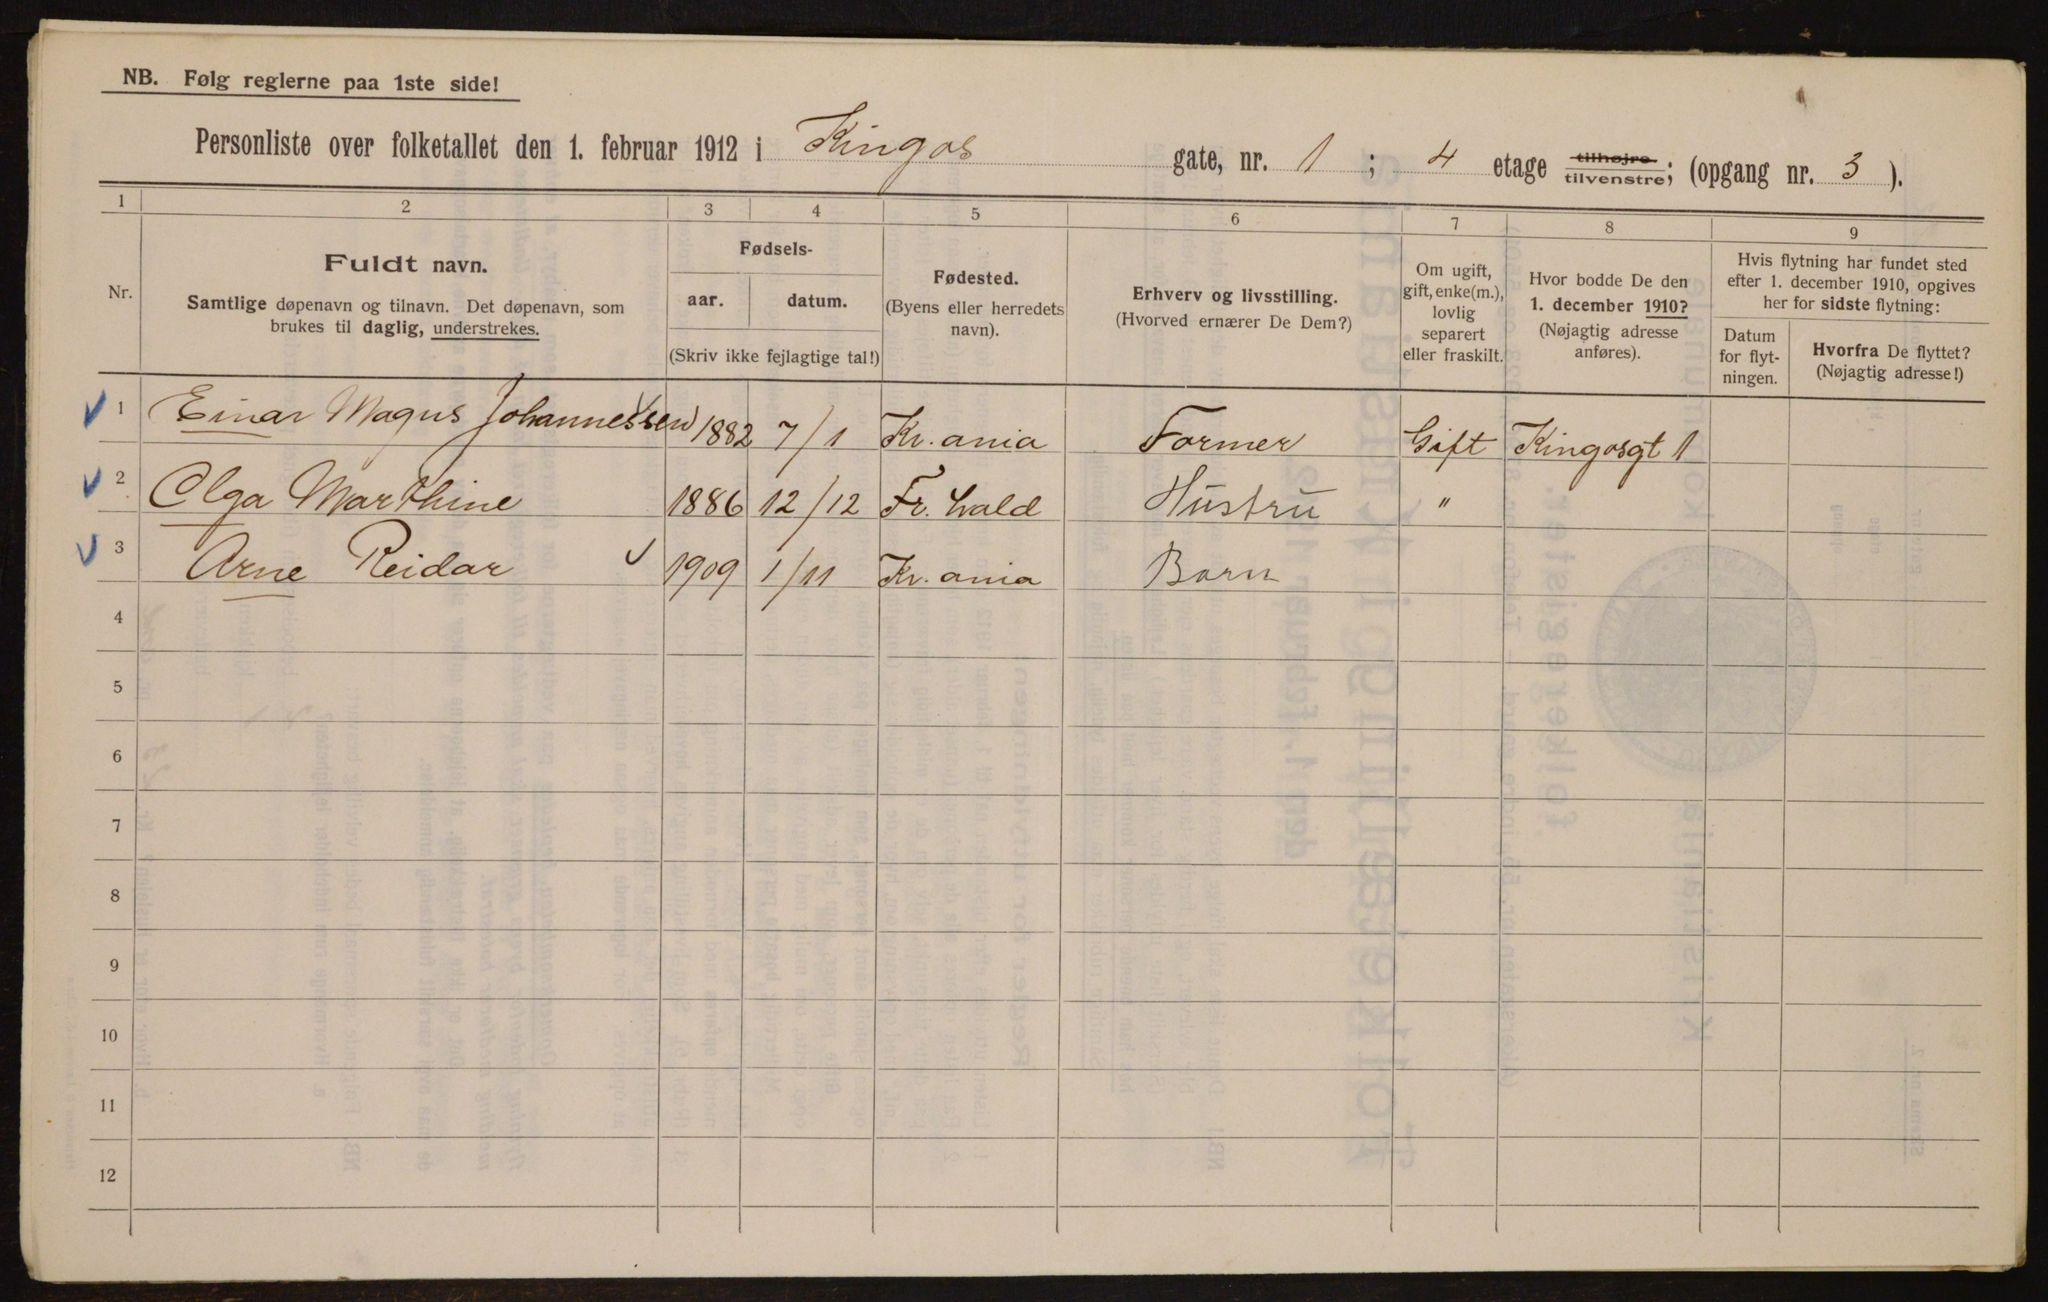 NB. Følg reglerne paa 1ste side!
Personliste over folketallet den 1. februar 1912 i Kingos gate, nr. 1 ; 4 etage tilhøjre tilvenstre; (opgang nr. 3 ).
1 2 3 4 5 6 7 8 9
Nr.
Fuldt navn.
Samtlige døpenavn og tilnavn. Det døpenavn, som
brukes til daglig, understrekes.
Fødsels-
aar. datum.
(Skriv ikke fejlagtige tal!)
Fødested.
(Byens eller herredets
navn).
Erhverv og livsstilling.
(Hvorved ernærer De Dem?)
Om ugift,
gift, enke(m.),
lovlig
separert
eller fraskilt.
Hvor bodde De den
1. december 1910?
(Nøjagtig adresse
anføres).
Hvis flytning har fundet sted
efter 1. december 1910, opgives
her for sidste flytning:
Datum
for flyt-
ningen.
Hvorfra De flyttet?
(Nøjagtig adresse!)
1 Einar Magus Johannessen 1882 7/1 Kr.ania Former Gift Kingosgt 1
2 Olga Marthine 1886 12/12 Fr. hald Hustru "
3 Arne Reidar 1909 1/11 Kr.ania Barn
4
5
6
7
8
9
10
11
12